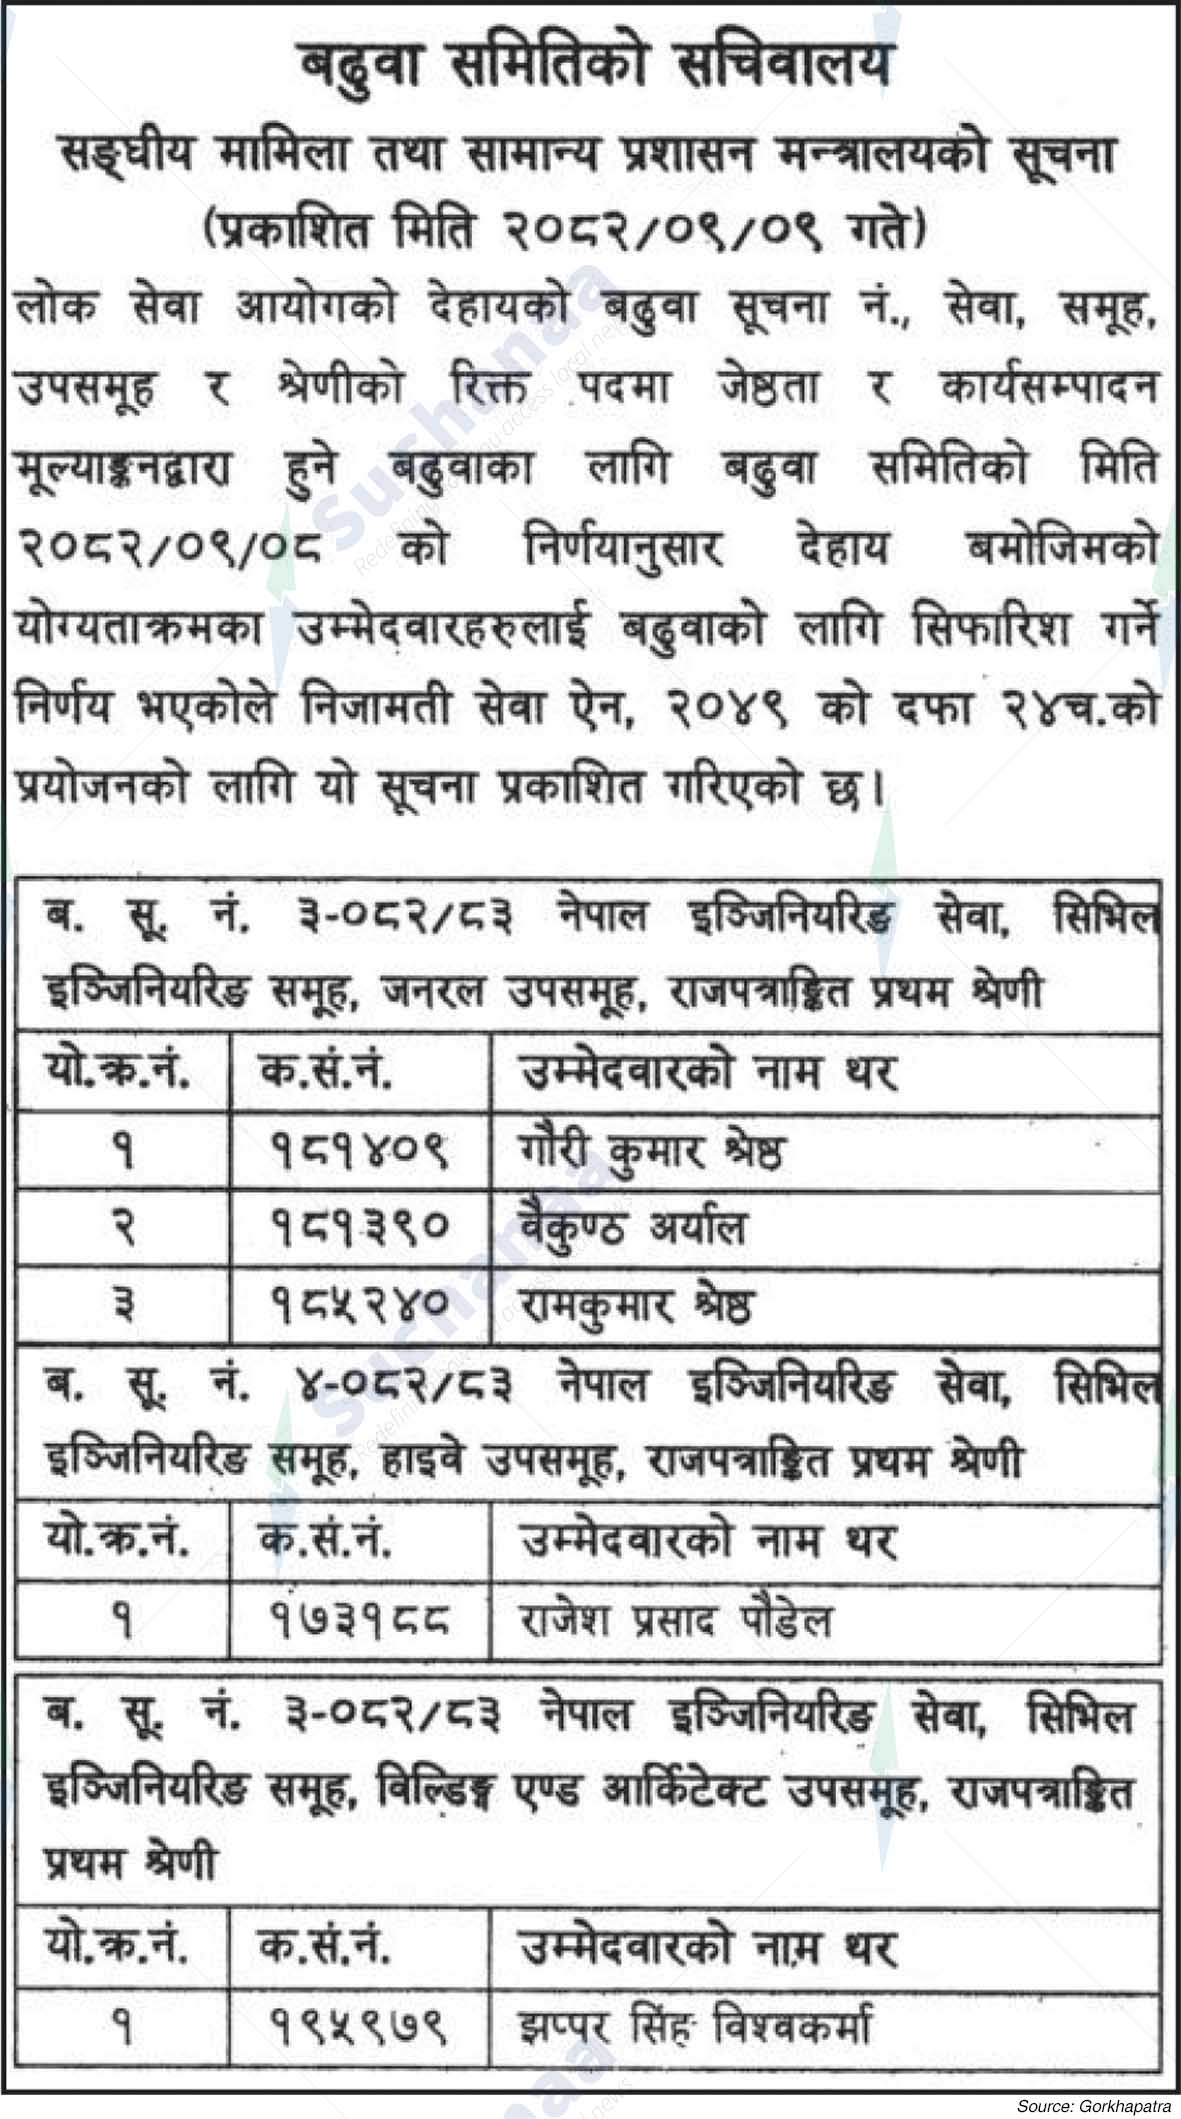 बढुवा समितिको सचिवालय
सङ्घीय मामिला तथा सामान्य प्रशासन मन्त्रालयको सूचना
(प्रकाशित मिति २०८२/०९/०९ गते)
लोक सेवा आयोगको देहायको बढुवा सूचना नं., सेवा, समूह,
उपसमूह र श्रेणीको रिक्त पदमा जेष्ठता र कार्यसम्पादन
मूल्याङ्कनद्वारा हुने बढुवाका लागि बढुवा समितिको मिति
२०८२/०९/०८ को निर्णयानुसार देहाय बमोजिमको
योग्यताक्रमका उम्मेदवारहरुलाई बढुवाको लागि सिफारिश गर्ने
निर्णय भएकोले निजामती सेवा ऐन, २०४९ को दफा २४च.को
प्रयोजनको लागि यो सूचना प्रकाशित गरिएको छ।
ब. सू. नं. ३-०८२/८३ नेपाल इञ्जिनियरिङ सेवा, सिभिल
इञ्जिनियरिङ समूह, जनरल उपसमूह, राजपत्राङ्कित प्रथम श्रेणी
यो.क्र.नं. क.सं.नं. उम्मेदवारको नाम थर
१ १८१४०९ गौरी कुमार श्रेष्ठ
२ १८१३९० वैकुण्ठ अर्याल
३ १८५२४० रामकुमार श्रेष्ठ
ब. सू. नं. ४-०८२/८३ नेपाल इञ्जिनियरिङ सेवा, सिभिल
इञ्जिनियरिङ समूह, हाइवे उपसमूह, राजपत्राङ्कित प्रथम श्रेणी
यो.क्र.नं. क.सं.नं. उम्मेदवारको नाम थर
१ १७३१८८ राजेश प्रसाद पौडेल
ब. सू. नं. ३-०८२/८३ नेपाल इञ्जिनियरिङ सेवा, सिभिल
इञ्जिनियरिङ समूह, विल्डिङ्ग एण्ड आर्किटेक्ट उपसमूह, राजपत्राङ्कित
प्रथम श्रेणी
यो.क्र.नं. क.सं.नं. उम्मेदवारको नाम थर
१ १९५९७९ झप्पर सिंह विश्वकर्मा
Source: Gorkhapatra
Suchanaa